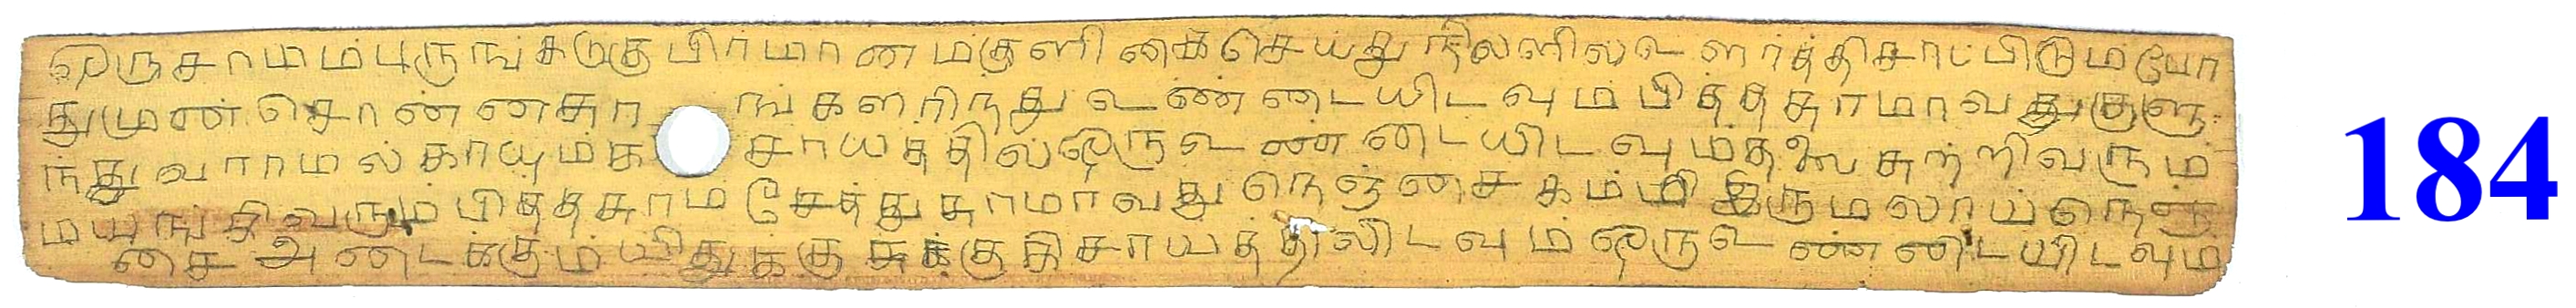 ஒருசாமமபருநங்கடுகுபிரமானமகுளிகைசெயதுநிலளிலஉளர்த்திசாப்பிடும்போ
துமுன்சொன்னசுரங்களறிநதுஉண்டையிடவும்பித்தசுரமாவதுகுளு
ந்துவாராமல்காயும்கசாயத்தில்ஒருஉண்டையிடவும்தலைசுற்றிவரும்
மயங்கிவரும்பித்தசுரமசேத்துசுரமாவதுநெஞ்சைகம்மிஇருமலாய்நெஞ்
சைஅடைக்கும்யிதுக்குசுக்குகிசாயத்திலிடவும்ஒருஉண்டையிடவும்
184